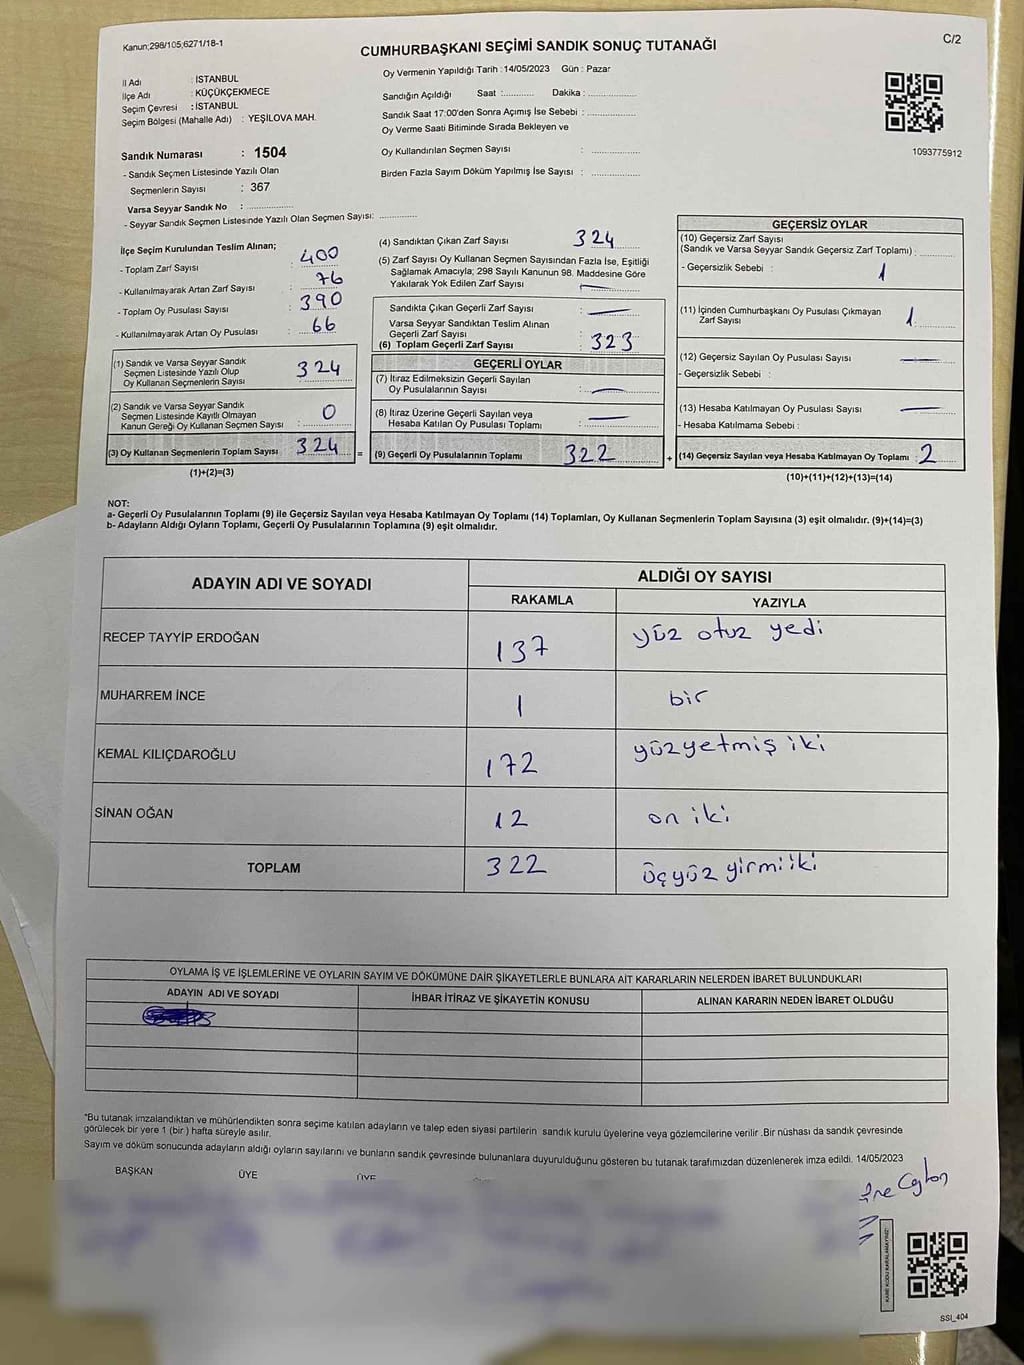 Kanun;298/105;6271/18-1
C/2
CUMHURBAŞKANI SEÇİMİ SANDIK SONUÇ TUTANAĞI
İl Adı : İSTANBUL
İlçe Adı : KÜÇÜKÇEKMECE
Seçim Çevresi : İSTANBUL
Seçim Bölgesi (Mahalle Adı) : YEŞİLOVA MAH.
Sandık Numarası : 1504
- Sandık Seçmen Listesinde Yazılı Olan
Seçmenlerin Sayısı : 367
Varsa Seyyar Sandık No : ................
- Seyyar Sandık Seçmen Listesinde Yazılı Olan Seçmen Sayısı: .............
Oy Vermenin Yapıldığı Tarih : 14/05/2023 Gün : Pazar
Sandığın Açıldığı Saat :........... Dakika : ................
Sandık Saat 17:00'den Sonra Açımış İse Sebebi : ................
Oy Verme Saati Bitiminde Sırada Bekleyen ve
Oy Kullandırılan Seçmen Sayısı : ................
Birden Fazla Sayım Döküm Yapılmış İse Sayısı : ................
1093775912
İlçe Seçim Kurulundan Teslim Alınan;
- Toplam Zarf Sayısı : 400
- Kullanılmayarak Artan Zarf Sayısı : 76
- Toplam Oy Pusulası Sayısı : 390
- Kullanılmayarak Artan Oy Pusulası : 66
(1) Sandık ve Varsa Seyyar Sandık
Seçmen Listesinde Yazılı Olup
Oy Kullanan Seçmenlerin Sayısı : 324
(2) Sandık ve Varsa Seyyar Sandık
Seçmen Listesinde Kayıtlı Olmayan
Kanun Gereği Oy Kullanan Seçmen Sayısı : 0
(3) Oy Kullanan Seçmenlerin Toplam Sayısı : 324 =
(1)+(2)=(3)
(4) Sandıktan Çıkan Zarf Sayısı : 324
(5) Zarf Sayısı Oy Kullanan Seçmen Sayısından Fazla İse, Eşitliği
Sağlamak Amacıyla; 298 Sayılı Kanunun 98. Maddesine Göre
Yakılarak Yok Edilen Zarf Sayısı : —
Sandıkta Çıkan Geçerli Zarf Sayısı : —
Varsa Seyyar Sandıktan Teslim Alınan
Geçerli Zarf Sayısı :
(6) Toplam Geçerli Zarf Sayısı : 323
GEÇERLİ OYLAR
(7) İtiraz Edilmeksizin Geçerli Sayılan
Oy Pusulalarının Sayısı : —
(8) İtiraz Üzerine Geçerli Sayılan veya
Hesaba Katılan Oy Pusulası Toplamı : —
(9) Geçerli Oy Pusulalarının Toplamı : 322 +
GEÇERSİZ OYLAR
(10) Geçersiz Zarf Sayısı
(Sandık ve Varsa Seyyar Sandık Geçersiz Zarf Toplamı) :
- Geçersizlik Sebebi : 1
(11) İçinden Cumhurbaşkanı Oy Pusulası Çıkmayan
Zarf Sayısı : 1
(12) Geçersiz Sayılan Oy Pusulası Sayısı : —
- Geçersizlik Sebebi :
(13) Hesaba Katılmayan Oy Pusulası Sayısı : —
- Hesaba Katılmama Sebebi :
(14) Geçersiz Sayılan veya Hesaba Katılmayan Oy Toplamı : 2
(10)+(11)+(12)+(13)=(14)
NOT:
a- Geçerli Oy Pusulalarının Toplamı (9) ile Geçersiz Sayılan veya Hesaba Katılmayan Oy Toplamı (14) Toplamları, Oy Kullanan Seçmenlerin Toplam Sayısına (3) eşit olmalıdır. (9)+(14)=(3)
b- Adayların Aldığı Oyların Toplamı, Geçerli Oy Pusulalarının Toplamına (9) eşit olmalıdır.
ADAYIN ADI VE SOYADI ALDIĞI OY SAYISI
RAKAMLA YAZIYLA
RECEP TAYYİP ERDOĞAN 137 yüz otuz yedi
MUHARREM İNCE 1 bir
KEMAL KILIÇDAROĞLU 172 yüzyetmiş iki
SİNAN OĞAN 12 on iki
TOPLAM 322 üçyüz yirmiiki
OYLAMA İŞ VE İŞLEMLERİNE VE OYLARIN SAYIM VE DÖKÜMÜNE DAİR ŞİKAYETLERLE BUNLARA AİT KARARLARIN NELERDEN İBARET BULUNDUKLARI
ADAYIN ADI VE SOYADI İHBAR İTİRAZ VE ŞİKAYETİN KONUSU ALINAN KARARIN NEDEN İBARET OLDUĞU
*Bu tutanak imzalandıktan ve mühürlendikten sonra seçime katılan adayların ve talep eden siyasi partilerin sandık kurulu üyelerine veya gözlemcilerine verilir .Bir nüshası da sandık çevresinde
görülecek bir yere 1 (bir ) hafta süreyle asılır.
Sayım ve döküm sonucunda adayların aldığı oyların sayılarını ve bunların sandık çevresinde bulunanlara duyurulduğunu gösteren bu tutanak tarafımızdan düzenlenerek imza edildi. 14/05/2023
BAŞKAN ÜYE ÜYE
KARE KODU KARALAMAYINIZ!
SSI_404